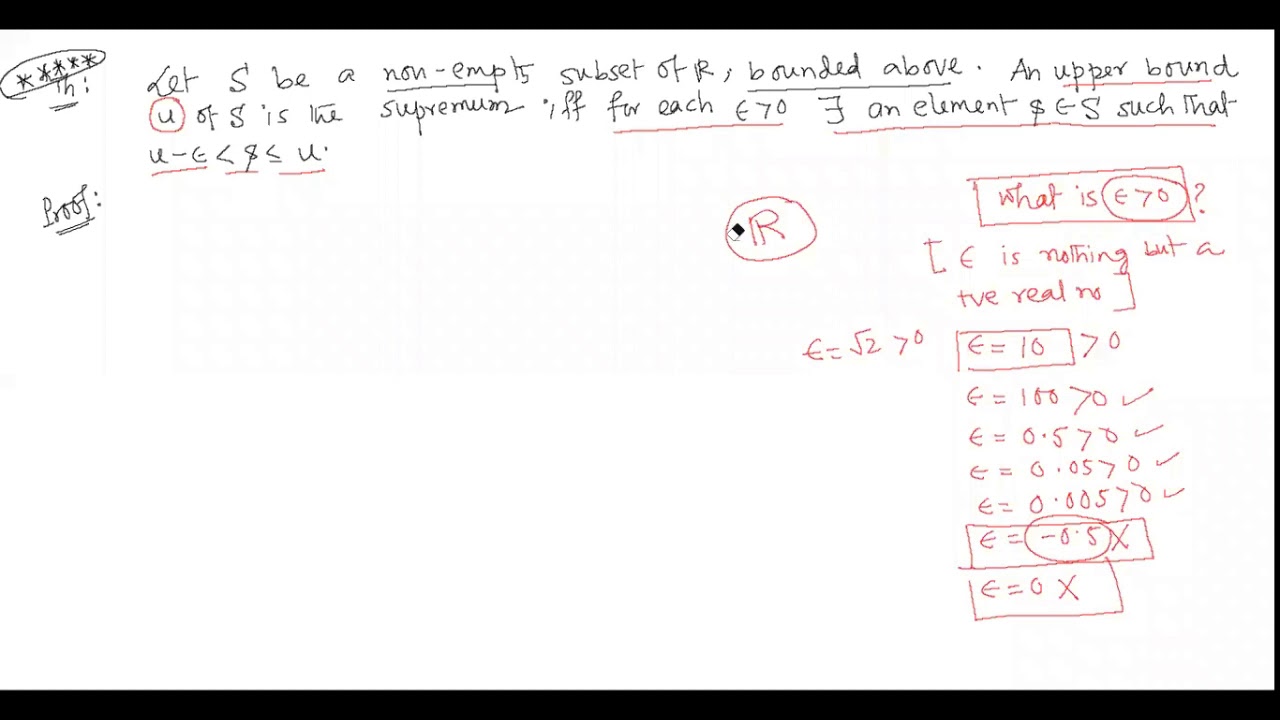 *****
Th: Let S be a non-empty subset of ℝ, bounded above. An upper bound
u of S is the supremum iff for each ϵ>0 ∃ an element s ∈ S such that
u-ϵ < s ≤ u.
Proof:
What is ϵ>0 ?
ℝ
[ ϵ is nothing but a
+ve real no ]
ϵ=√2 >0
ϵ= 10 >0
ϵ= 100 >0 ✓
ϵ= 0.5 >0 ✓
ϵ= 0.05>0 ✓
ϵ= 0.005>0 ✓
ϵ= -0.5 X
ϵ=0 X